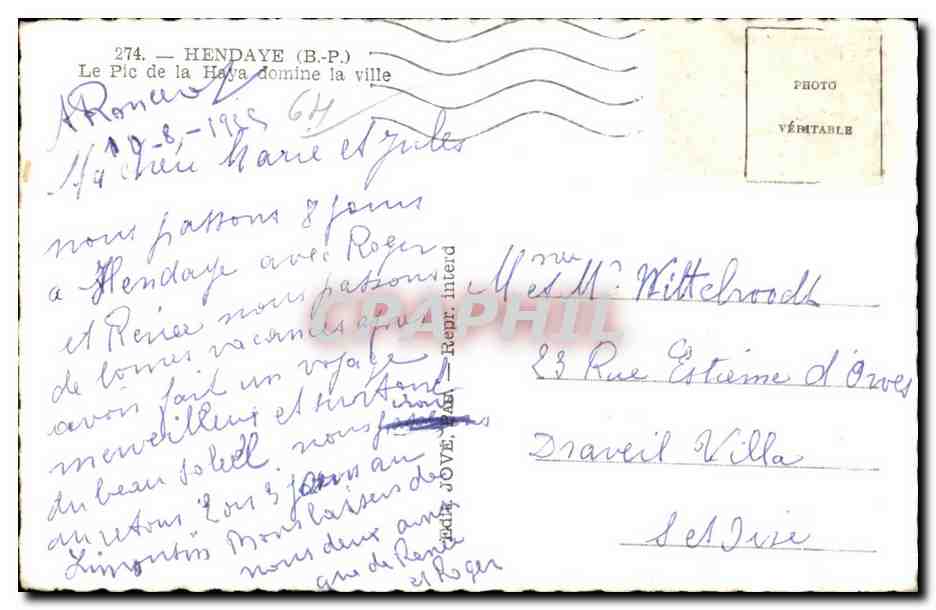 274. — HENDAYE (B.-P.)
Le Pic de la Haya domine la ville
PHOTO
VÉRITABLE
64
Marie et Jules
nous passons 8 jours
a Hendaye avec Roger
et Renée nous passons
de bonnes vacances après
avoir fait un voyage
merveilleux et surtout
du beau soleil nous irons
au retour 2 ou 3 jours au
nous deux
que de Renée
et Roger
Edit. JOVE, PAU — Repr. interd
CPAPHIL
Mme et Mr Wittebroodt
23 Rue Estieme d'Orves
Draveil Villa
S et Oise